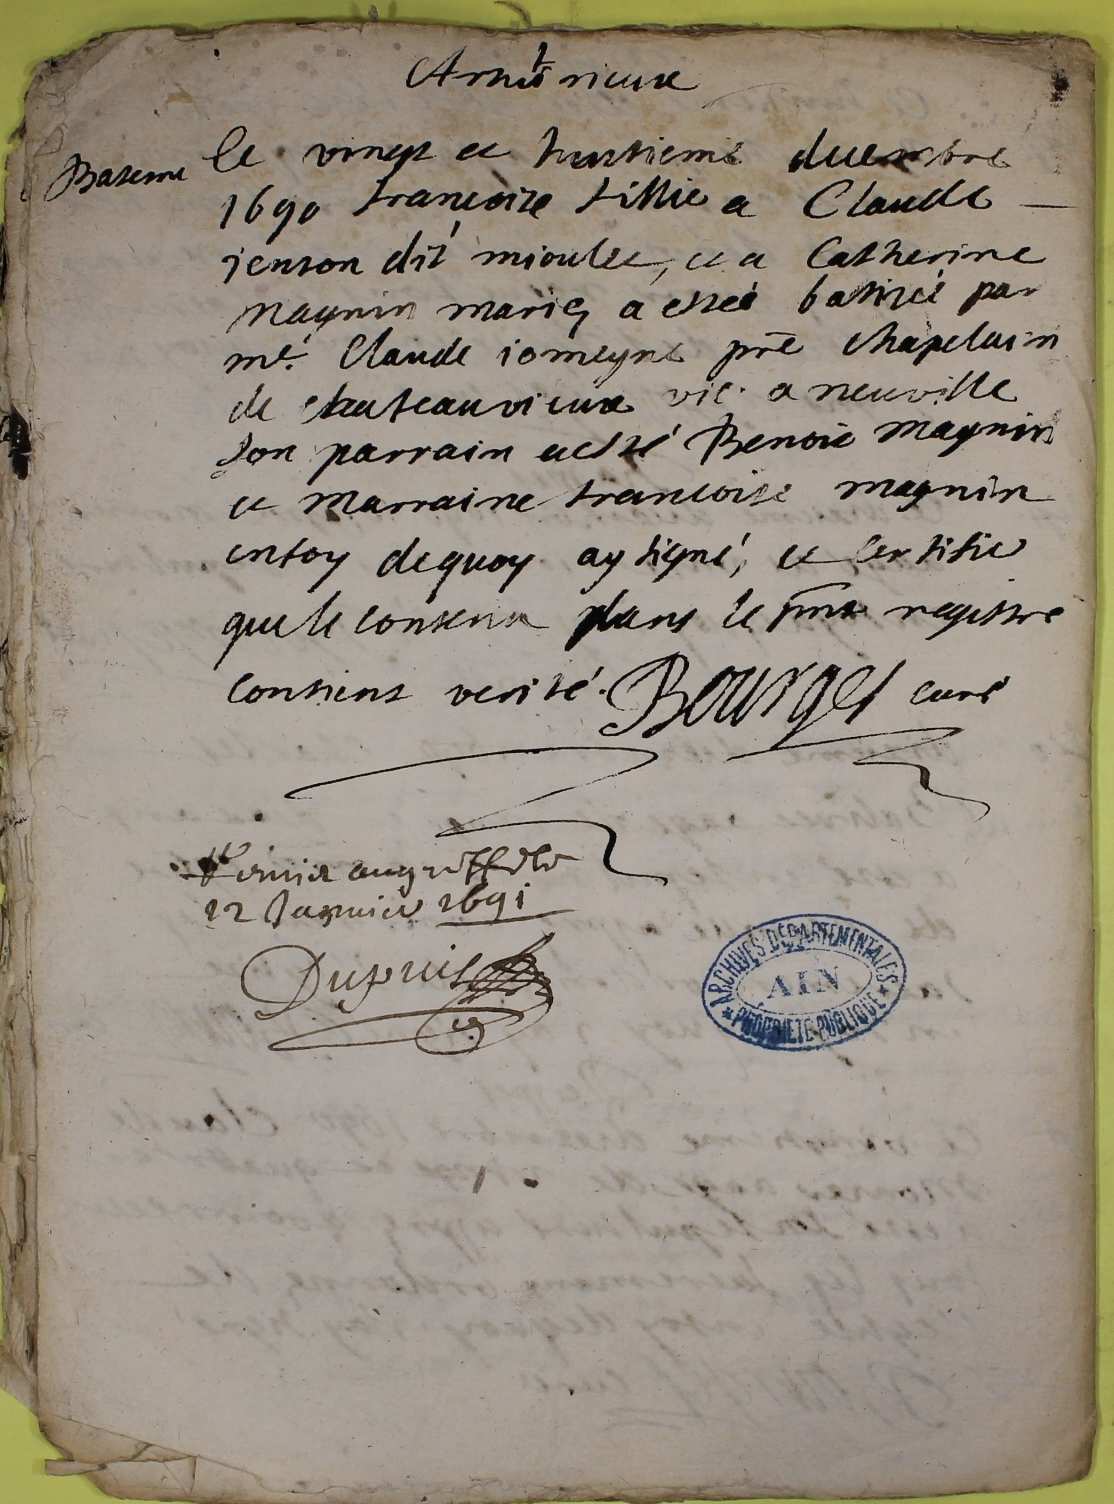 Bateme
le vingt et huitieme decembre
1690 francoise fillie a Claude
jenton dit mioulet, et a Catherine
magnin mariez a estée batisée par
mre. Claude pre chapelain
de chateauvieux vic. a neuville
son parrain a esté Benoit magnin
et marraine francoise magnin
en foy de quoy ay signé, et certifie
que le contenu dans le pnt registre
contient verité. Bourges curé
au greffe le
22 Janvier 1691
Dupuis
ARCHIVES DÉPARTEMENTALES
AIN
PROPRIÉTÉ PUBLIQUE